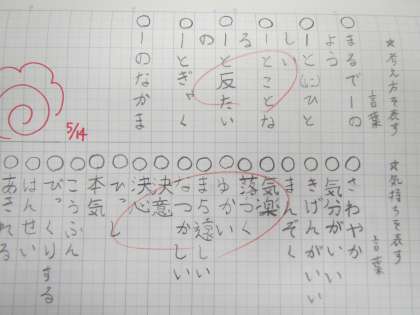 ★考え方を表す
言葉
○まるでーの
よう
○ーと(に)ひと
しい
○ーとことな
る
○ーと反たい
の
○ーとぎゃく
○ーのなかま
5/14
★気持ちを表す
言葉
○さわやか
○気分がいい
○きげんがいい
○まんぞく
○気楽
○落つく
○ゆかい
○まち遠しい
○なつかしい
○決意
○決心
○ひっし
○本気
○こうふん
○びっくりする
○はんせい
○あきれる